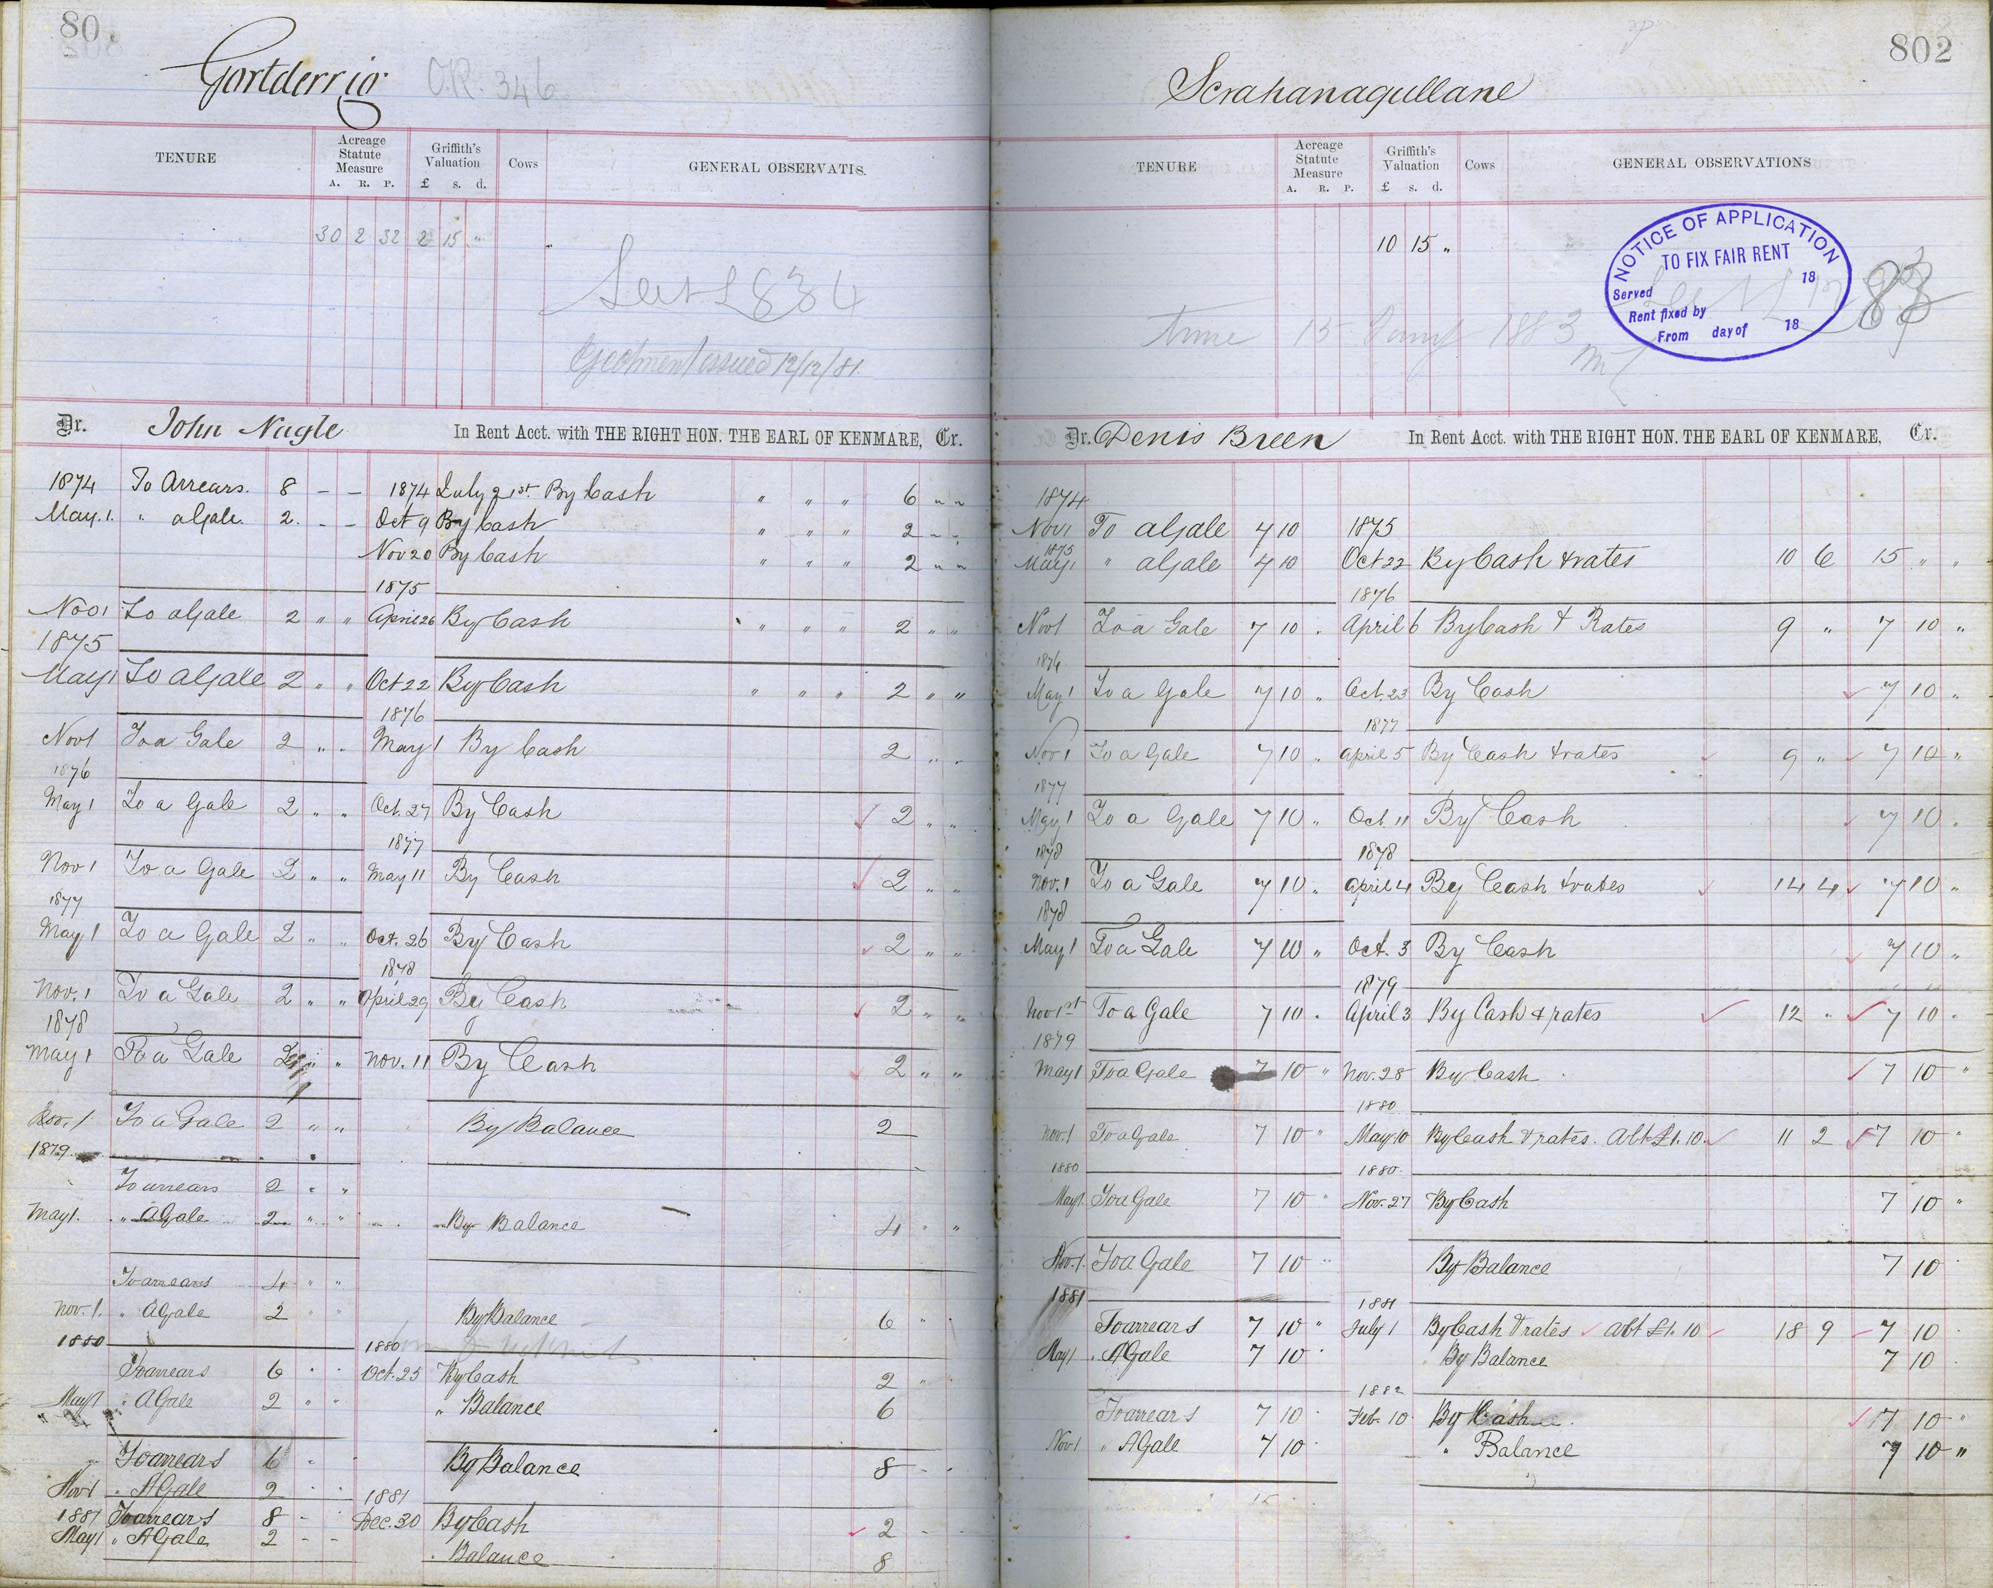 80
Gortderrig O.R. 346
TENURE Acreage Statute Measure A. R. P. Griffith's Valuation £ s. d. Cows GENERAL OBSERVATIS.
30 2 32 2 15 "
L 834
Ejectment issued 12/12/81
Dr. John Nagle In Rent Acct. with THE RIGHT HON. THE EARL OF KENMARE, Cr.
1874 To Arrears. 8 - - 1874 July 21st By Cash " " " 6 " "
May. 1. " a Gale. 2. - - Oct 9 By Cash " " " 2 " "
Nov 20 By Cash " " " 2 " "
1875
Nov 1 To a Gale 2 " " April 26 By Cash " " " " 2 " "
1875
May 1 To a Gale 2 " " Oct 22 By Cash " " " 2 " "
1876
Nov 1 To a Gale 2 " " May 1 By Cash 2 " "
1876
May 1 To a Gale 2 " " Oct. 27 By Cash 2 " "
1877
Nov 1 To a Gale 2 " " May 11 By Cash 2 " "
1877
May 1 To a Gale 2 " " Oct. 26 By Cash 2 " "
1878
Nov. 1 To a Gale 2 " " April 29 By Cash 2 " "
1878
May 1 To a Gale 2 " " Nov. 11 By Cash 2 " "
Nov. 1 To a Gale 2 " " By Balance 2
1879
To arrears 2 " "
May 1. " A Gale 2 " " By Balance 4 " "
To arrears 4 " "
Nov. 1. " A Gale 2 " " By Balance 6 "
1880 1880
To arrears 6 " " Oct. 25 By Cash 2 "
May 1 " A Gale 2 " " " Balance 6
To arrears 6 " By Balance 8 - -
Nov 1 " A Gale 2 " 1881
1881 To arrears 8 - Dec. 30 By Cash 2 -
May 1 " A Gale 2 - - . Balance 8
802
Scrahanagullane
TENURE Acreage Statute Measure A. R. P. Griffith's Valuation £ s. d. Cows GENERAL OBSERVATIONS
10 15 "
NOTICE OF APPLICATION
TO FIX FAIR RENT
18
Served
Rent fixed by
From day of 18
83
time 15 1883
Dr. Denis Breen In Rent Acct. with THE RIGHT HON. THE EARL OF KENMARE, Cr.
1874
Nov 1 To a Gale 7 10 1875
1875
May 1 " a Gale 7 10 Oct 22 By Cash & rates 10 6 15 " "
1876
Nov 1 To a Gale 7 10 . April 6 By Cash & Rates 9 " 7 10 "
1876
May 1 To a Gale 7 10 " Oct. 23 By Cash 7 10 "
1877
Nov 1 To a Gale 7 10 " April 5 By Cash & rates 9 " 7 10 "
1877
May 1 To a Gale 7 10 " Oct. 11 By Cash 7 10 .
1878 1878
Nov. 1 To a Gale 7 10 " April 4 By Cash & rates 14 4 7 10 "
1878
May 1 To a Gale 7 10 " Oct. 3 By Cash 7 10 "
1879
Nov 1st To a Gale 7 10 . April 3 By Cash & rates 12 " 7 10 .
1879
May 1 To a Gale 7 10 " Nov. 28 By Cash 7 10 "
1880
Nov. 1 To a Gale 7 10 " May 10 By Cash & rates. Abt £1. 10. 11 2 7 10 "
1880 1880
May 1 To a Gale 7 10 " Nov. 27 By Cash 7 10 "
Nov. 1. To a Gale 7 10 " By Balance 7 10
1881 1881
To arrears 7 10 " July 1 By Cash & rates Abt £1. 10 18 9 7 10
May 1 " A Gale 7 10 By Balance 7 10
1882
To arrears 7 10 Feb. 10 By Cash 7 10 "
Nov 1 " A Gale 7 10 " Balance 7 10 "